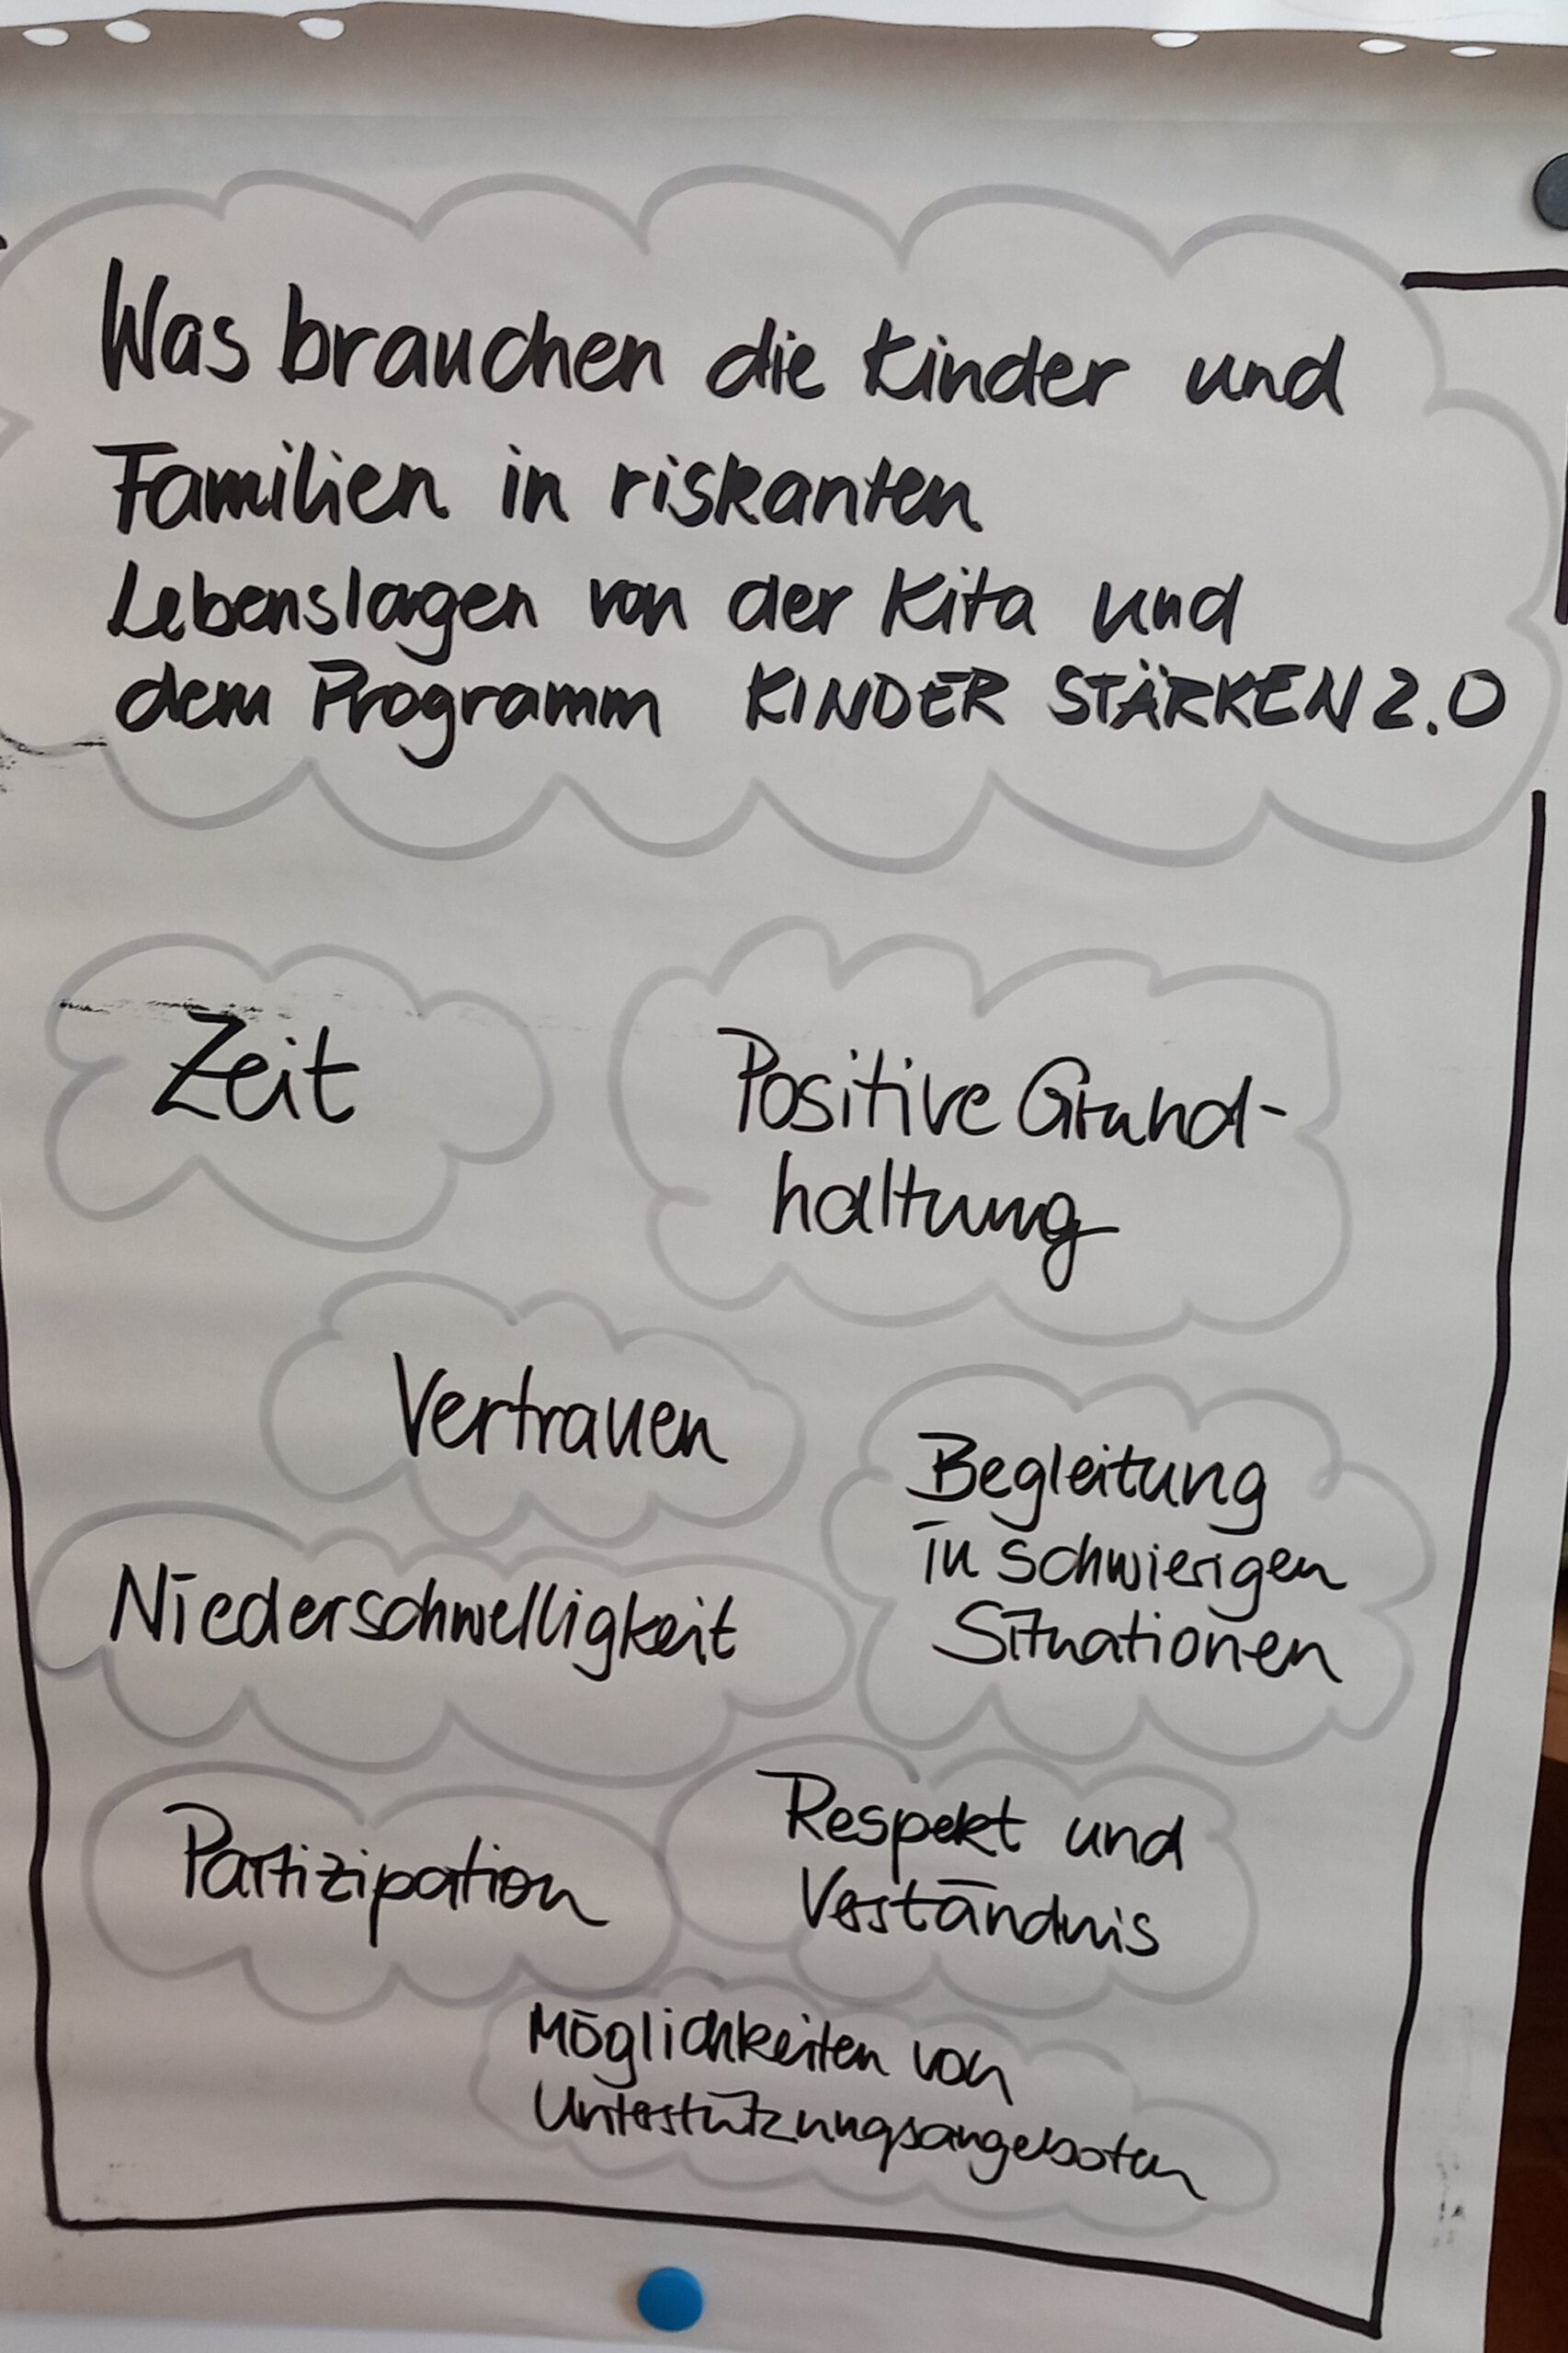 Was brauchen die Kinder und
Familien in riskanten
Lebenslagen von der Kita und
dem Programm KINDER STÄRKEN 2.0
Zeit
Positive Grund-
haltung
Vertrauen
Begleitung
in schwierigen
Situationen
Niederschwelligkeit
Partizipation
Respekt und
Verständnis
Möglichkeiten von
Unterstützungsangeboten